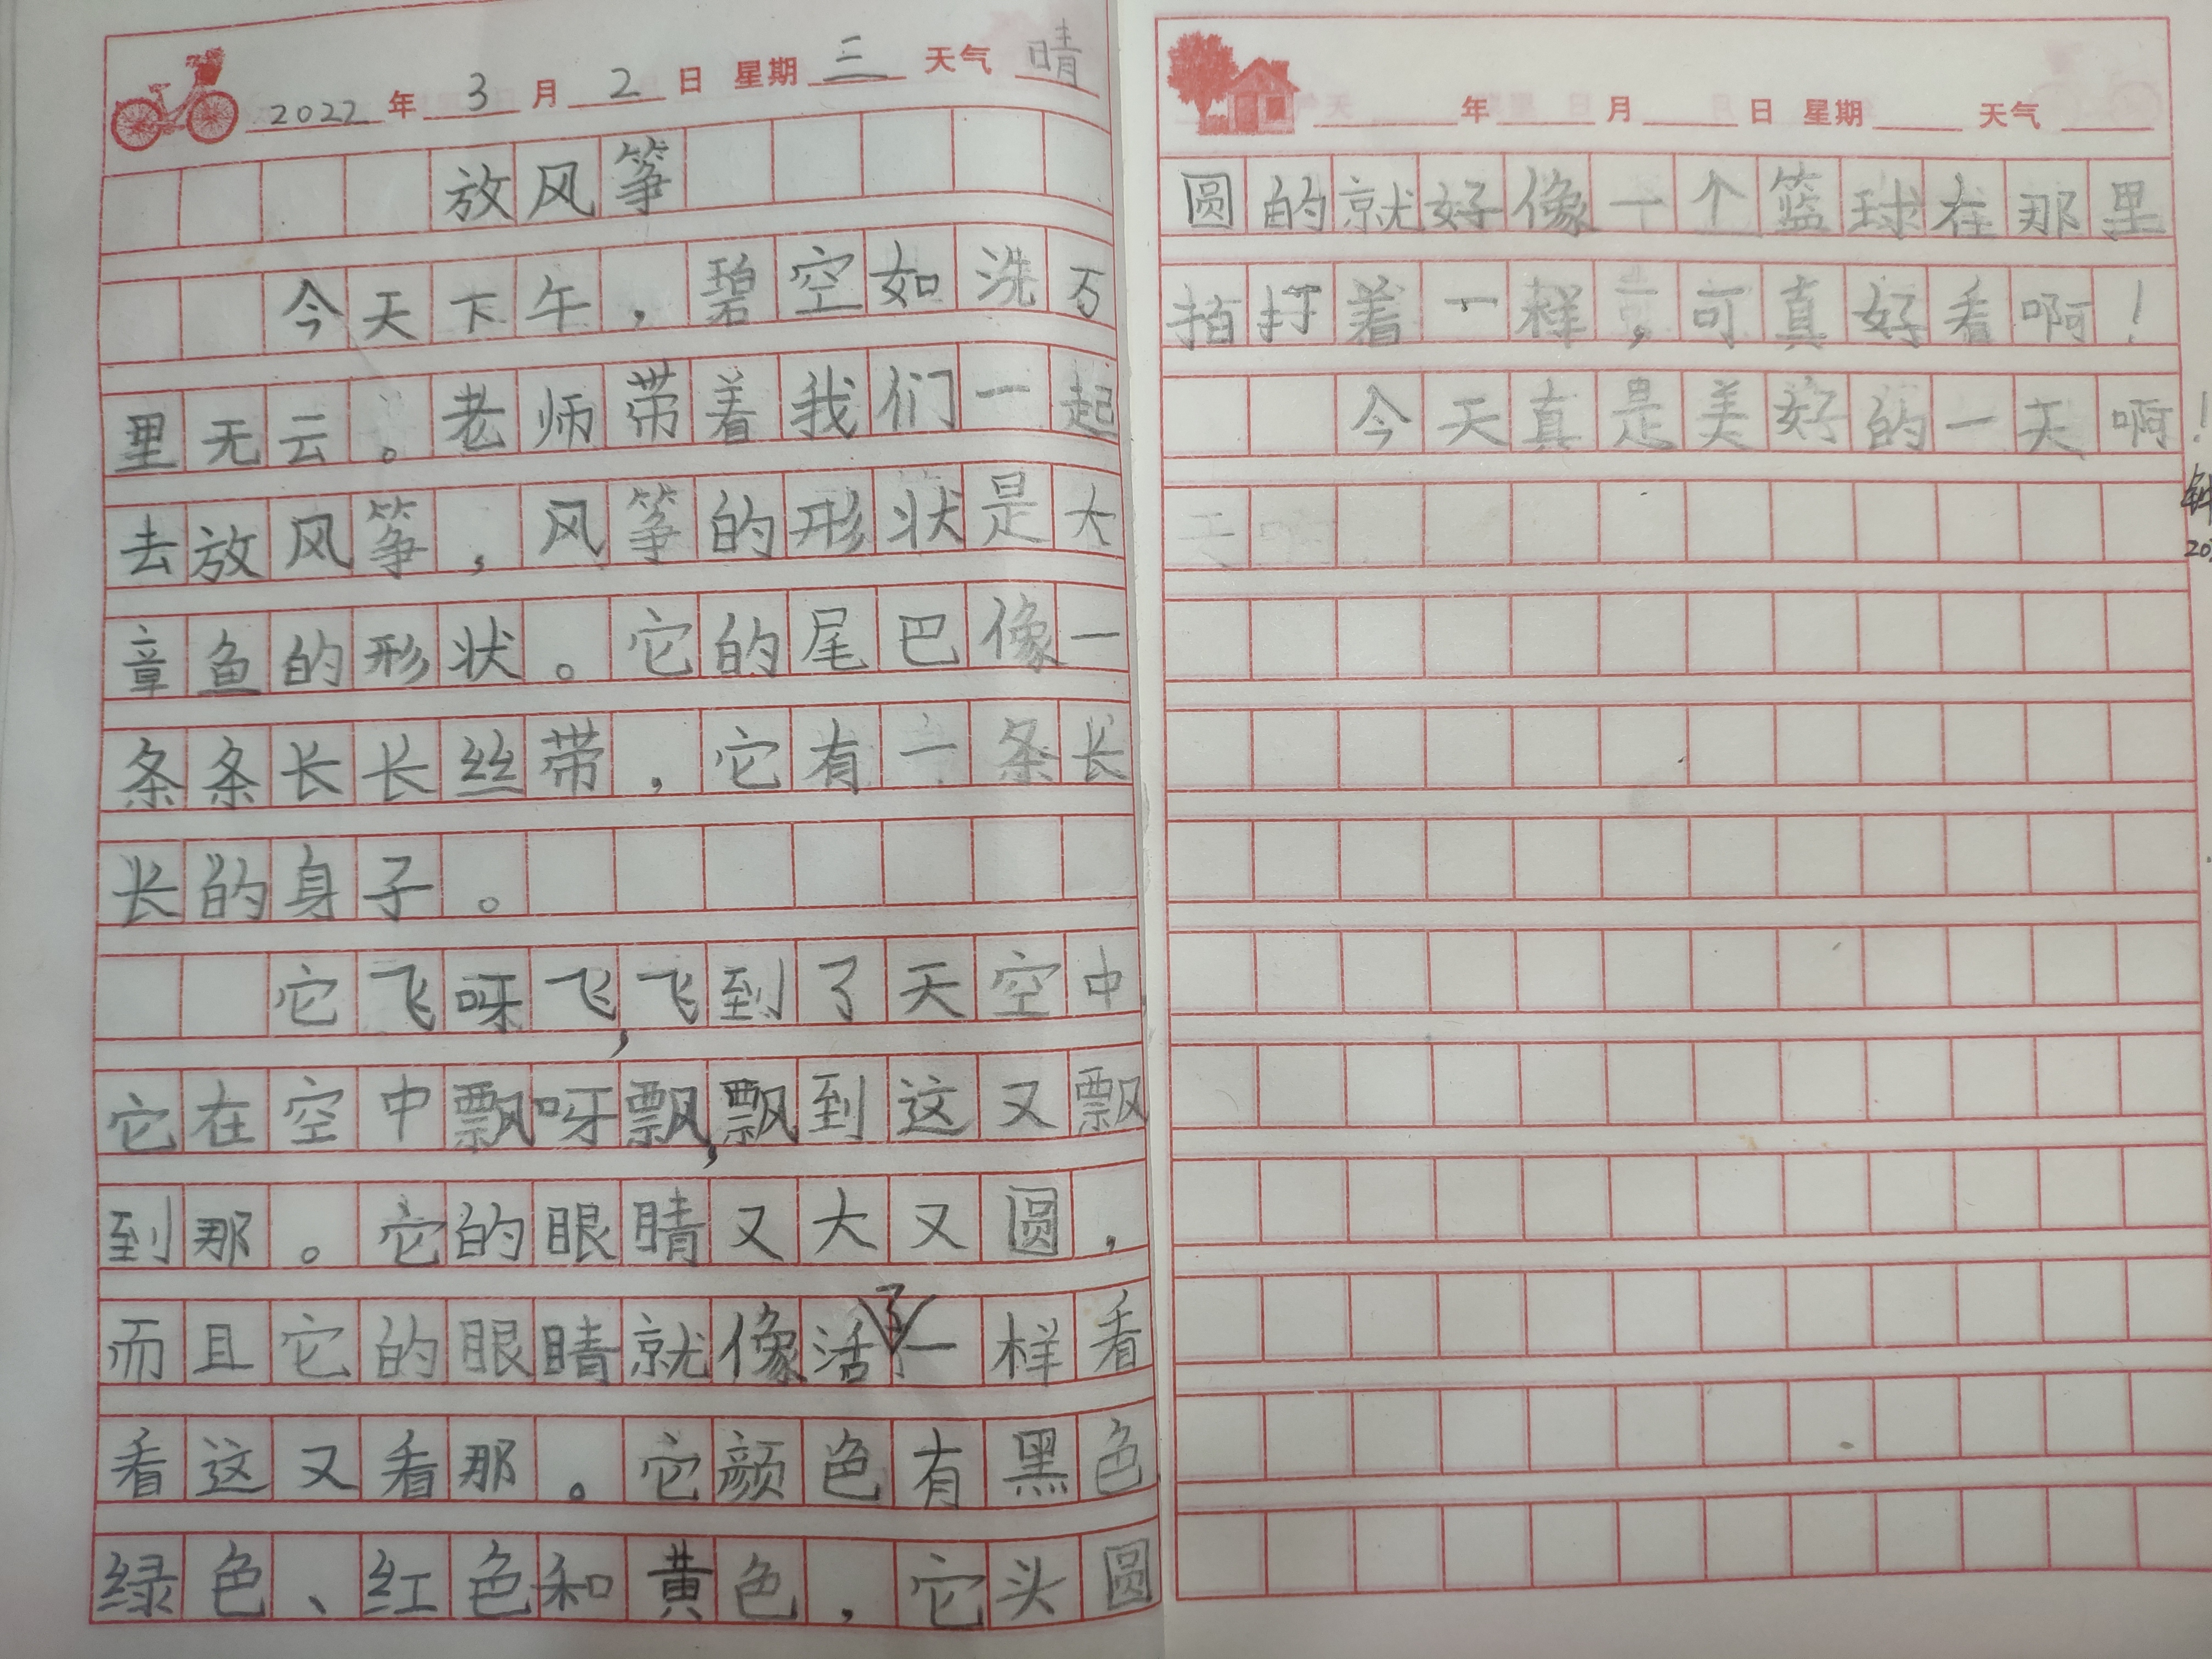 2022年3月2日 星期三 天气晴
放风筝
今天下午，碧空如洗万
里无云。老师带着我们一起
去放风筝，风筝的形状是大
章鱼的形状。它的尾巴像一
条条长长丝带，它有一条长
长的身子。
它飞呀飞，飞到了天空中
它在空中飘呀飘，飘到这又飘
到那。它的眼睛又大又圆，
而且它的眼睛就像活了一样看
看这又看那。它颜色有黑色
绿色、红色和黄色，它头圆
年 月 日 星期 天气
圆的就好像一个篮球在那里
拍打着一样，可真好看啊！
今天真是美好的一天啊！